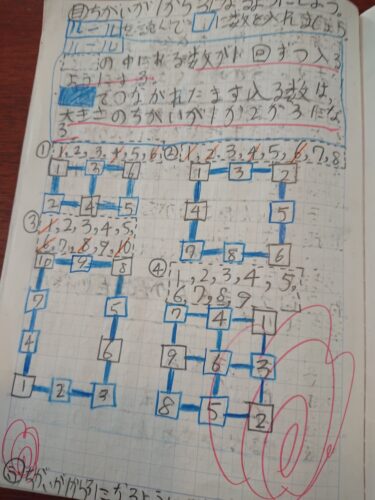 目ちがいが1から3になるようにしよう。
ルールを読んで□に数を入れましょう
ルール
の中に入れる数が1回ずつ入る
ようにする。
でつながれたます入る数は、
大きさのちがいが1か2か3にな
る
① 1,2,3,4,5,6
1 3 6
2 4 5
② 1,2,3,4,5,6,7,8
1 3 2
4 5
7 8 6
③ 1,2,3,4,5,
6,7,8,9,10
10 9 8
7 5
4 6
1 2 3
④ 1,2,3,4,5,
6,7,8,9
7 4 1
9 6 3
8 5 2
⑤ ちがいが1から3になるよう